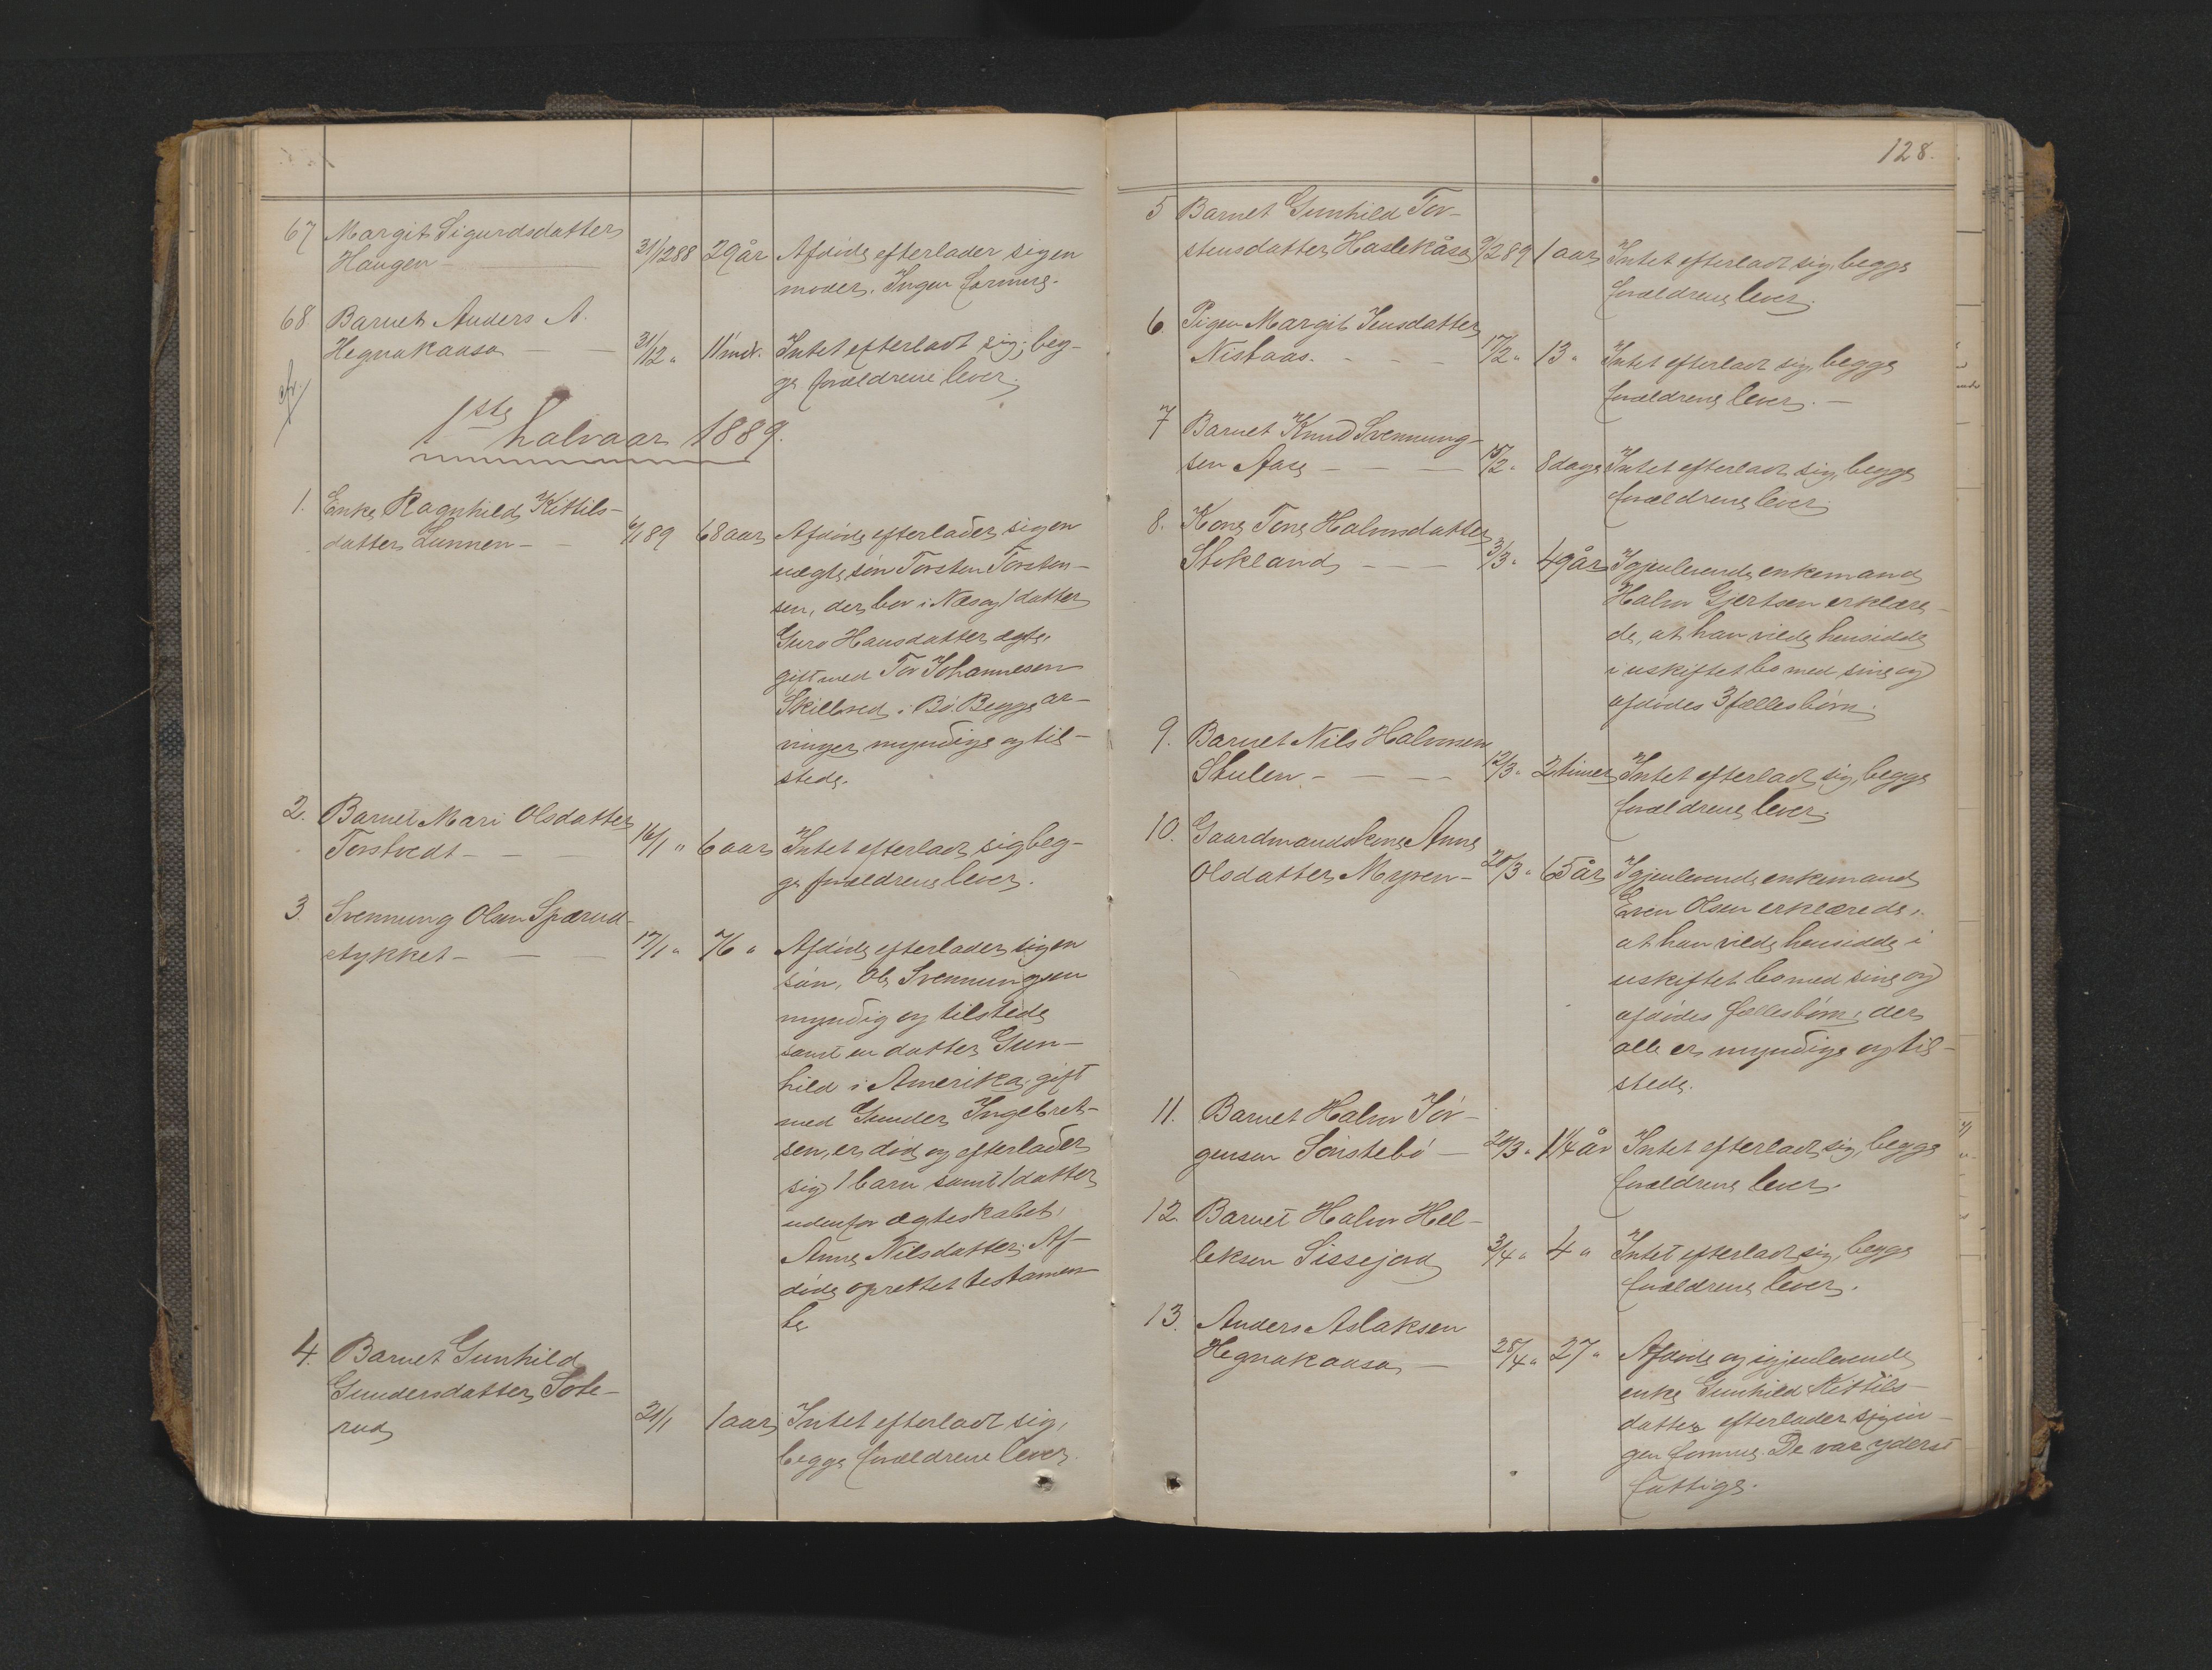 67 Margit Sigurdsdatter
Haugen — 31/12 88 29 år Afdöde efterlader sig en
moder. Ingen formue.
68 Barnet Anders A.
Hegnakaasa — — 31/12 „ 11 mdr. Intet efterladt sig, beg-
ge forældrene lever.
1ste halvaar 1889.
1. Enke Ragnhild Kittils-
datter Lunnen — — 6/1 89 68 aar Afdöde efterlader sig en
uægte sön Torsten Torsten-
sen, der bor i Næs og 1 datter
Guro Hansdatter ægte,
gift med Tov Johannesen
Skilbred i Bö. Begge ar-
vinger myndige og til-
stede.
2. Barnet Mari Olsdatter
Torstvedt — — — 16/1 „ 6 aar Intet efterladt sig beg-
ge forældrene lever.
3. Svennung Olsen Spærud-
stykket — — — 17/1 „ 76 „ Afdöde efterlader sig en
sön, Ole Svennungsen
myndig og tilstede
samt en datter Gun-
hild i Amerika, gift
med Gunder Ingebret-
sen, er död og efterlader
sig 1 barn samt 1 datter
udenfor ægteskabet,
Anne Nilsdatter. Af-
döde oprettet testamen-
te
4. Barnet Gunhild
Gundersdatter Sote-
rud 21/1 1 aar Intet efterladt sig,
begge forældrene lever.
128.
5 Barnet Gunhild Tor-
stensdatter Haslekåsa 9/2 89 1 aar Intet efterladt sig, begge
forældrene lever.
6. Pigen Margit Jensdatter
Nisbaas. — — — 17/2 „ 13 „ Intet efterladt sig, begge
forældrene lever. —
7 Barnet Knud Svennung-
sen Aase — — — 15/2 „ 8 dage Intet efterladt sig, begge
forældrene lever.
8. Kone Tone Halvorsdatter
Stokland — — — 3/3 „ 49 år Igjenlevende enkemand
Halvor Gjertsen erklære-
de, at han vilde hensidde
i uskiftet bo med sine og
afdödes 3 fællesbörn.
9. Barnet Nils Halvorsen
Stulen — — — 12/3 „ 2 timer Intet efterladt sig, begge
forældrene lever.
10. Gaardmandskone Anne
Olsdatter Myren — 20/3 „ 65 år Igjenlevende enkemand
Even Olsen erklærede,
at han vilde hensidde i
uskiftet bo med sine og
afdödes fællesbörn, der
alle er myndige og til-
stede.
11. Barnet Halvor Jör-
gensen Sönstebö — 20/3 „ 1 1/4 år Intet efterladt sig, begge
forældrene lever.
12. Barnet Halvor Hel-
leksen Sissejord 3/4 „ 4 „ Intet efterladt sig, begge
forældrene lever.
13. Anders Aslaksen
Hegnakaasa — 28/4 „ 27 „ Afdöde og igjenlevende
enke Gunhild Kittils-
datter efterlader sig in-
gen formue. De var yderst
fattige.